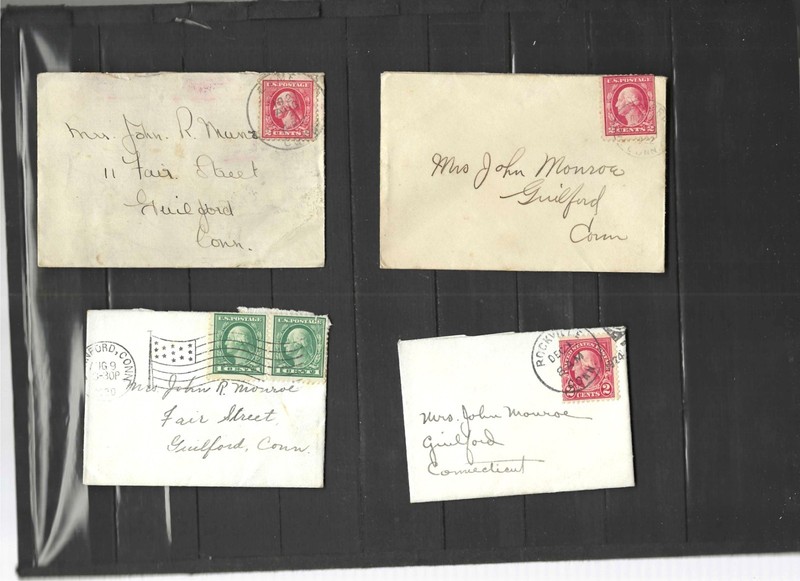 U.S. POSTAGE
2 CENTS 2
CONN
Mrs. John R. Munr
11 Fair Street
Guilford
Conn.
U.S. POSTAGE
2 CENTS 2
CONN
Mrs John Monroe
Guilford
Conn
NFORD, CONN
AUG 9
-30P
U.S. POSTAGE
1 CENT 1
U.S. POSTAGE
1 CENT 1
Mrs John R. Monroe
Fair Street.
Guilford, Conn.
ROCKVILLE
DEC
CONN
1924
2 CENTS 2
Mrs. John Monroe
Guilford
Connecticut